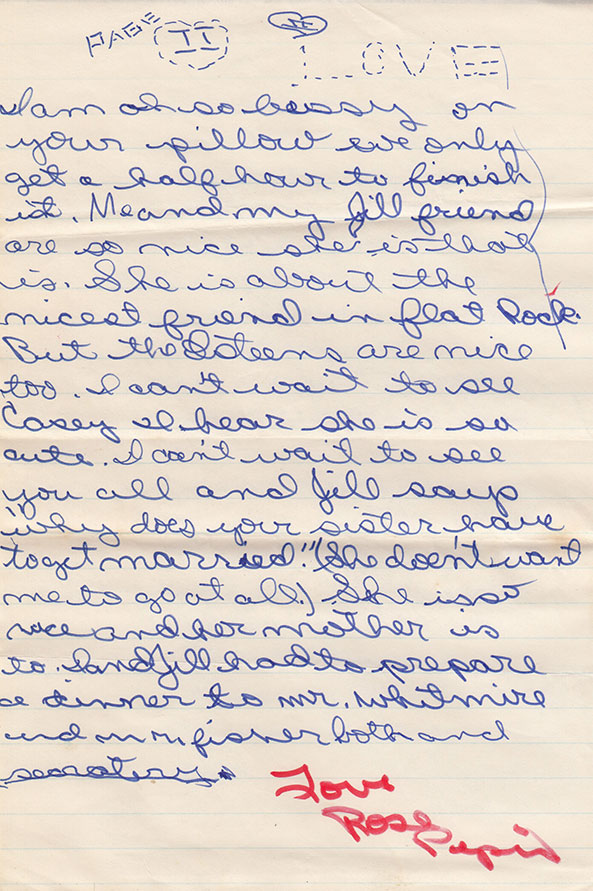 PAGE II II LOVE
I am oh so bussy on
your pillow eve only
get a half hour to finish
it. Me and my Jill friend
are so nice she is that
is. She is about the
nicest friend in flat Rock.
But the 8 teens are nice
too. I can't wait to see
Casey I hear she is so
cute. I can't wait to see
you all and Jill says
"why does your sister have
to get married." (She doen't want
me to go at all.) She is so
nice and her mother is
to. I and Jill had to prepare
a dinner to mr. whitmire
and mr. fisher both and
secratery.
Love
Rose